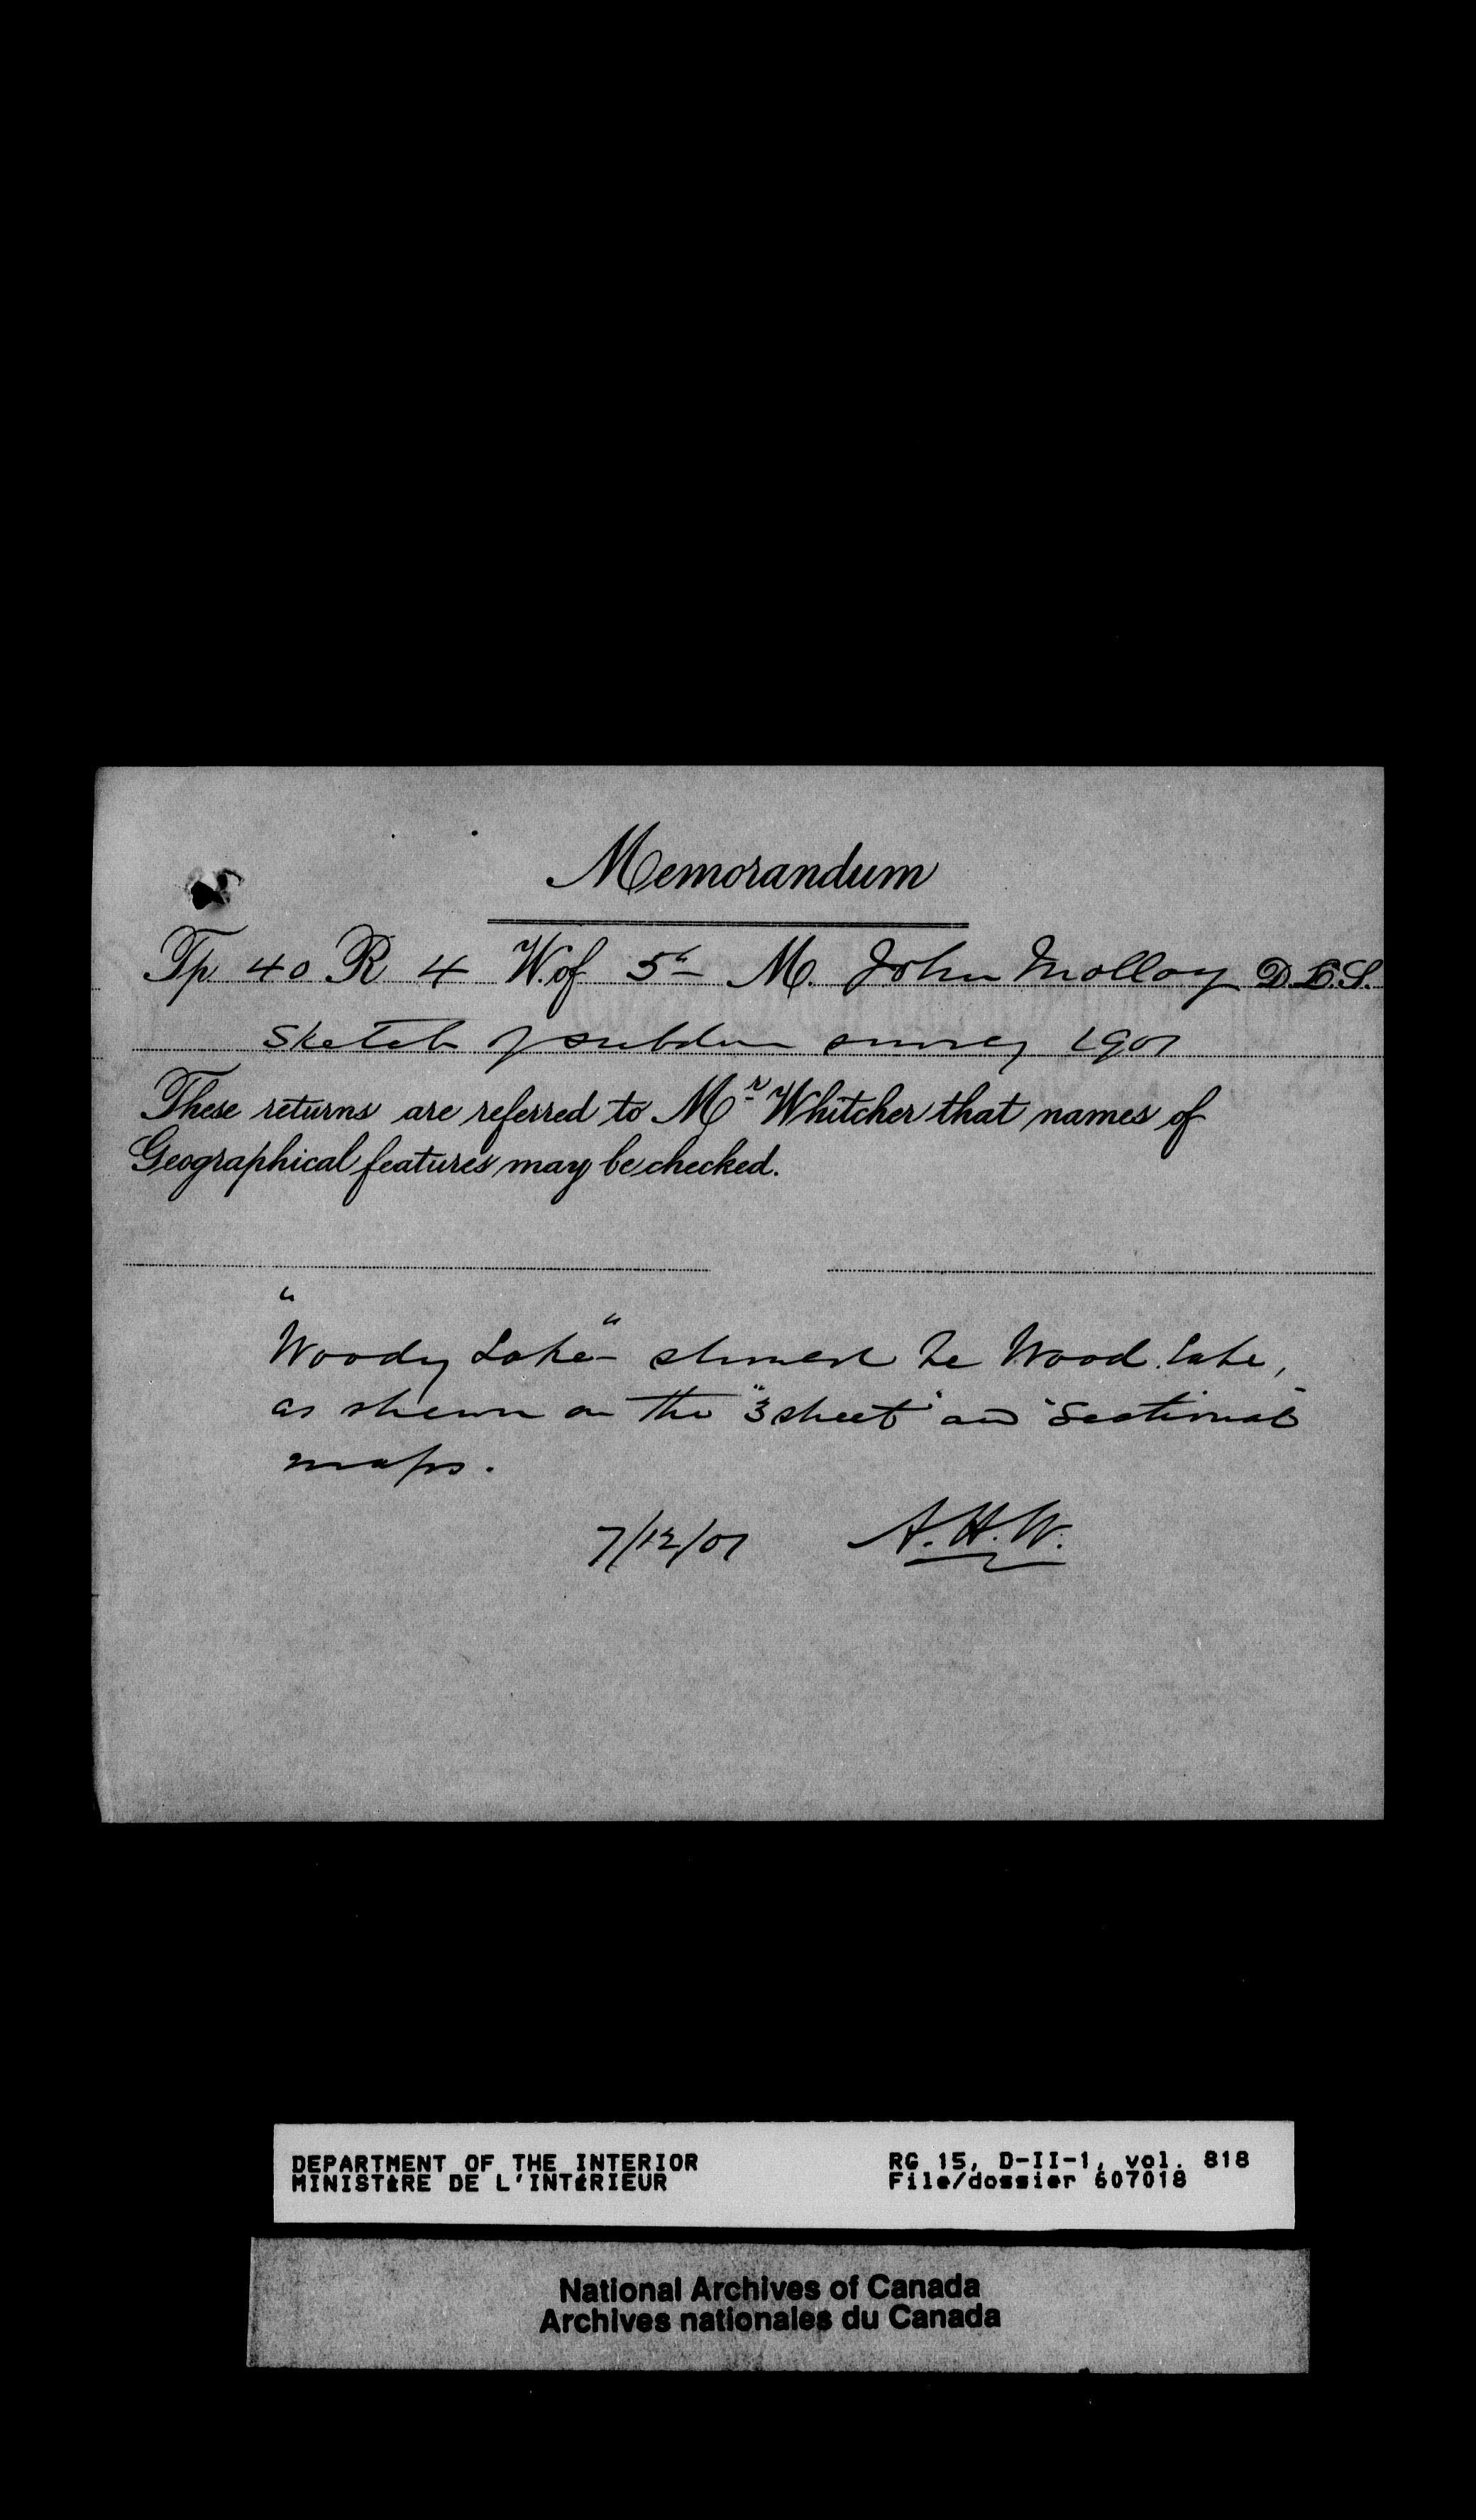 Memorandum
Tp 40 R 4 W. of 5th M. John Molloy D.L.S.
Sketch of subdn survey 1901
These returns are referred to Mr Whitcher that names of
Geographical features may be checked.
"Woody Lake" should be Wood Lake,
as shewn on the "3 sheet" and "Sectional"
maps.
7/12/01 A.H.W.
DEPARTMENT OF THE INTERIOR RG 15, D-II-1, vol. 818
MINISTÈRE DE L'INTÉRIEUR File/dossier 607018
National Archives of Canada
Archives nationales du Canada